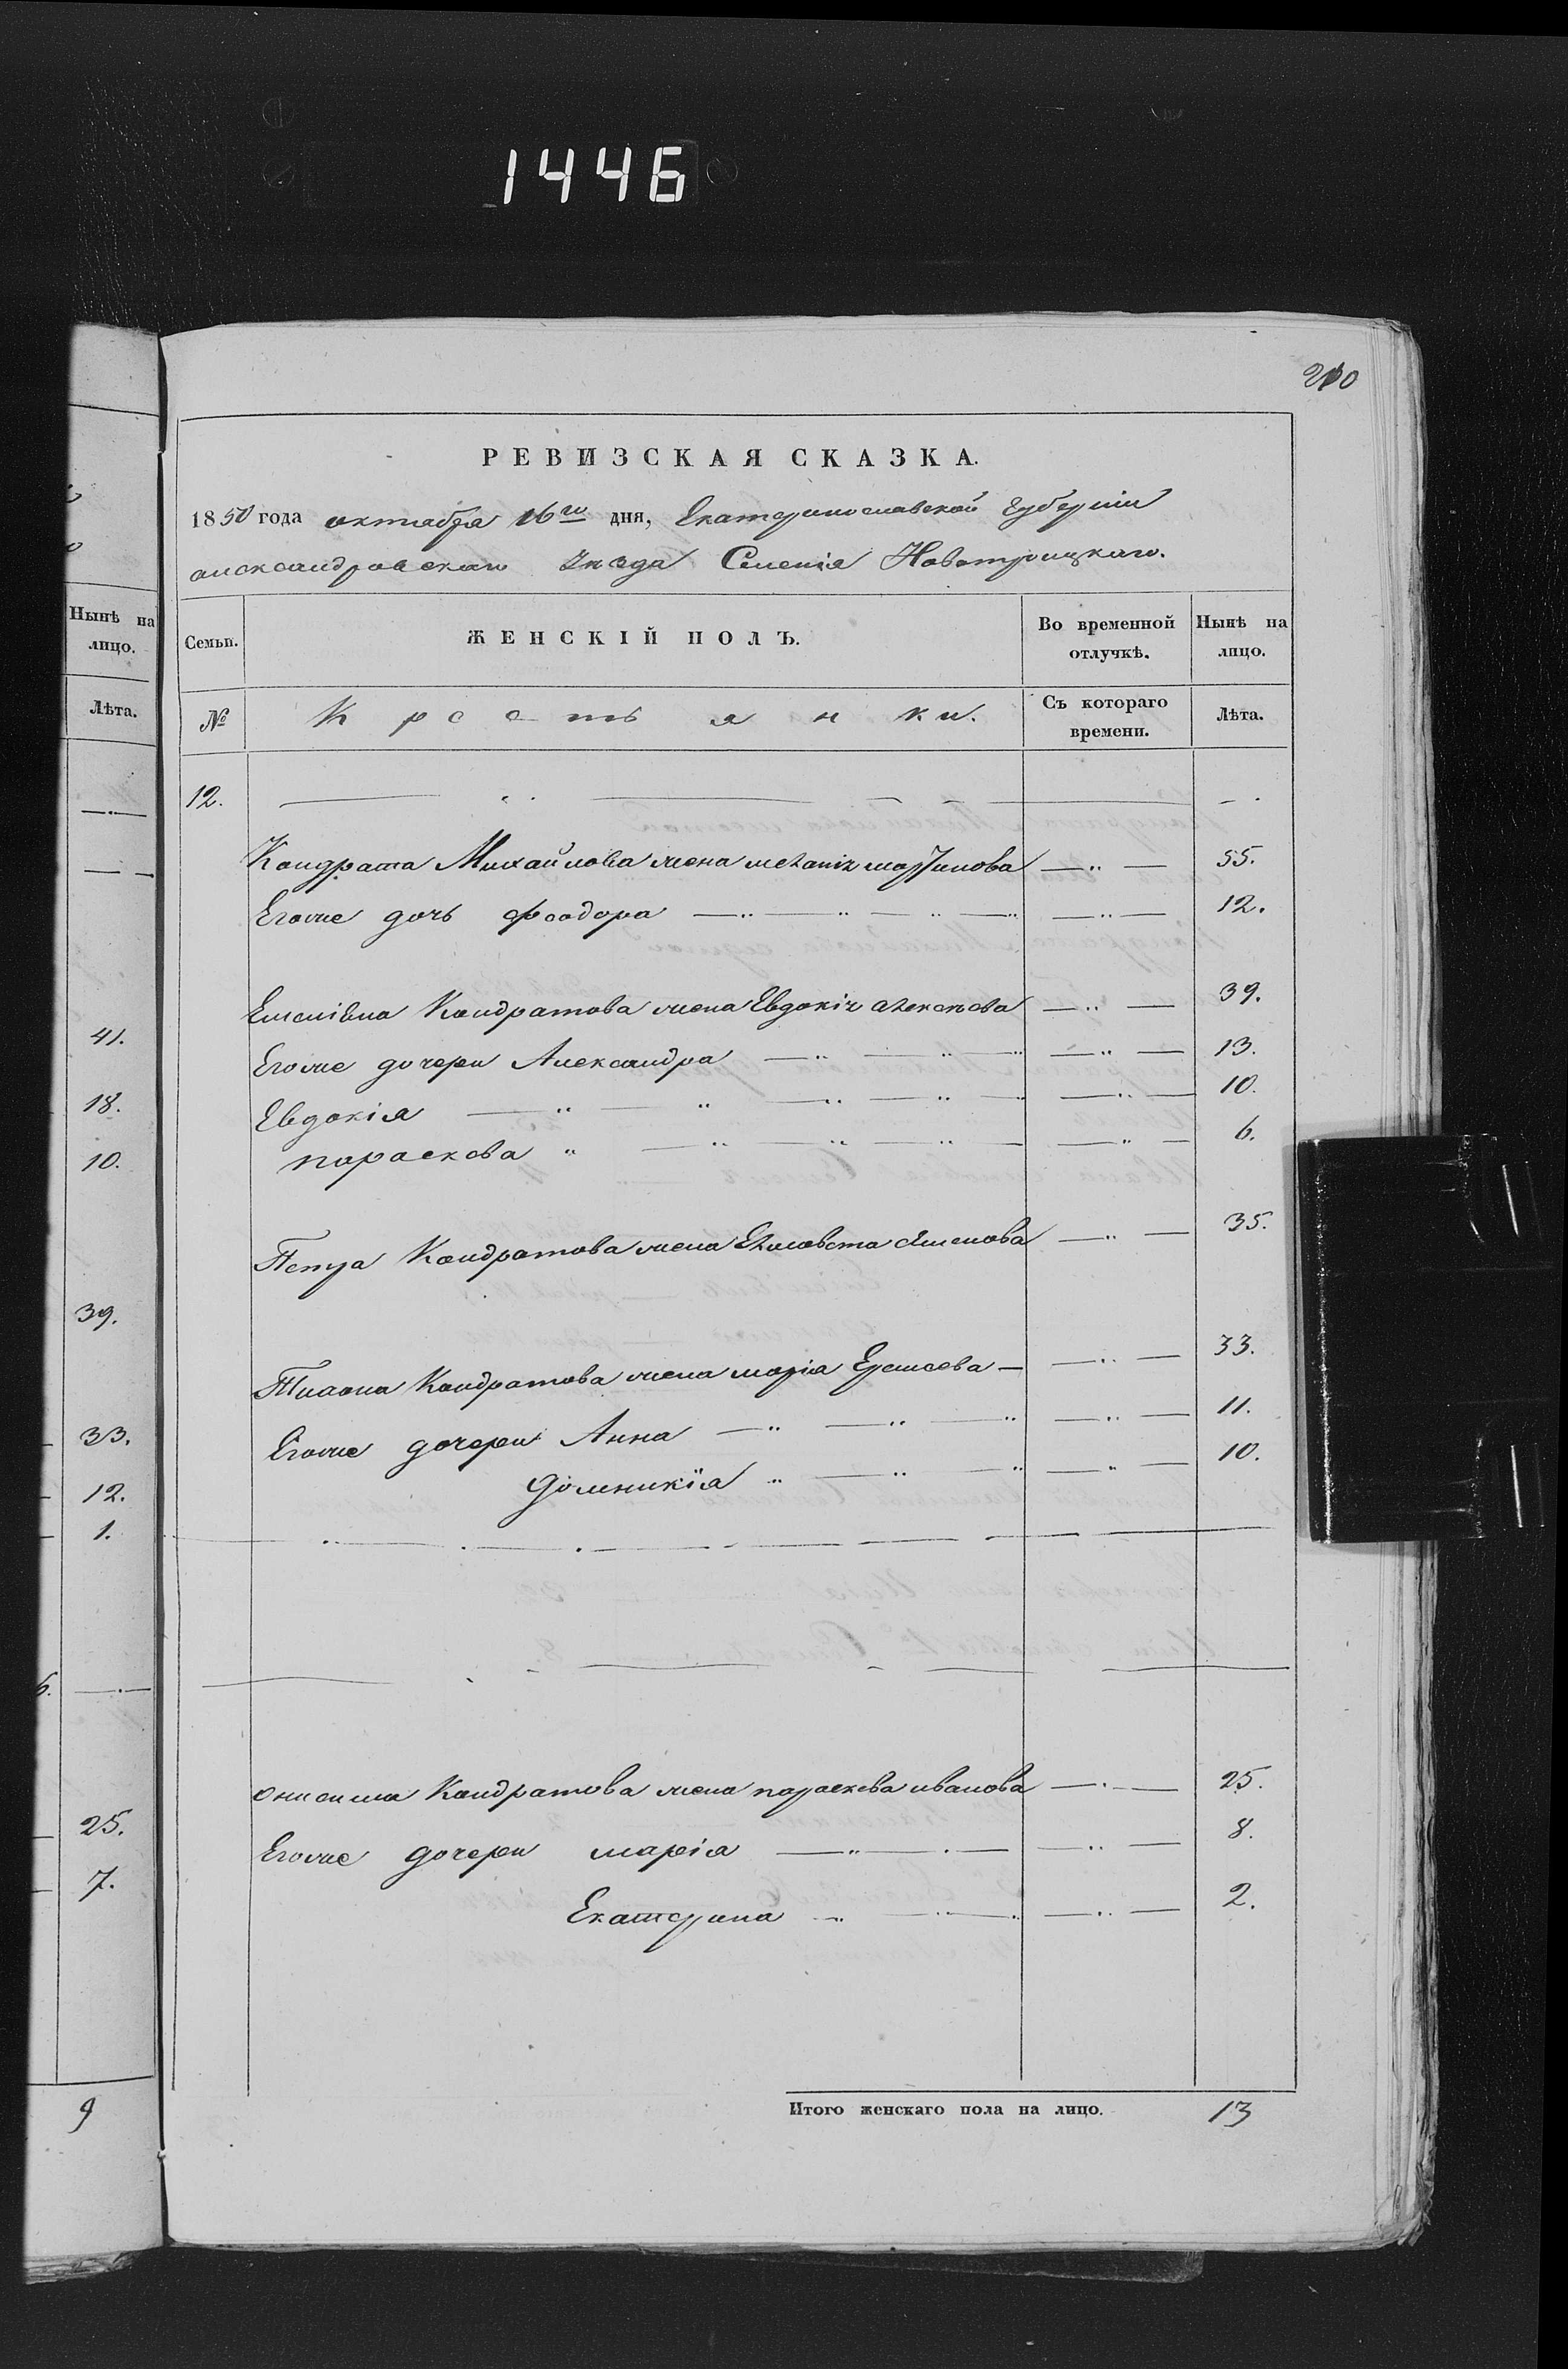 1446
210
РЕВИЗСКАЯ СКАЗКА.
1850 года октября 16го дня, Екатеринославской Губернiи
александровскаго Уѣзда Селенiя Новотроицкаго.
Нынѣ на лицо.
Лѣта.
41.
18.
10.
39.
33.
12.
1.
25.
7.
9
Семьи. ЖЕНСКIЙ ПОЛЪ. Во временной отлучкѣ. Нынѣ на лицо.
№ Крестьянки. Съ котораго времени. Лѣта.
12.
Кондрата Михайлова жена меланiя мартинова 55.
Егоже дочь феодора 12.
Емелiяна Кондратова жена Евдокiя алексѣева 39.
Егоже дочери Александра 13.
Евдокiя 10.
параскова 6.
Петра Кондратова жена Елисовета 35.
Кондратова жена марiя 33.
Егоже дочери Анна 11.
Домникiя 10.
онисима Кондратова жена параскева иванова 25.
Егоже дочери марiя 8.
Екатерина 2.
Итого женскаго пола на лицо. 13